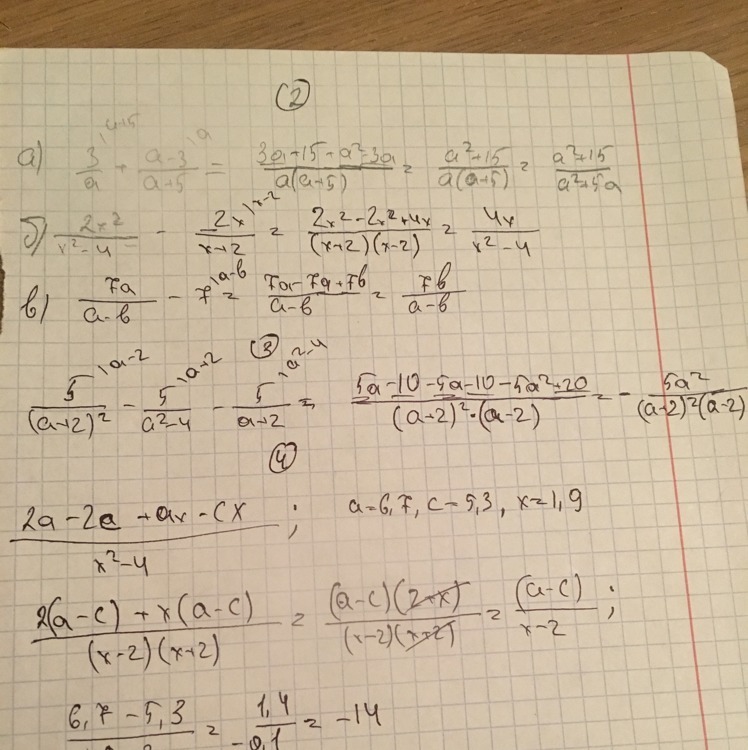 2
а) 3/a \a+5 + (a-3)/(a+5) \a = (3a+15+a²-3a)/(a(a+5)) = (a²+15)/(a(a+5)) = (a²+15)/(a²+5a)
б) 2x²/(x²-4) - 2x/(x+2) \x-2 = (2x²-2x²+4x)/((x+2)(x-2)) = 4x/(x²-4)
в) 7a/(a-b) - 7 \a-b = (7a-7a+7b)/(a-b) = 7b/(a-b)
3
5/(a+2)² \a-2 - 5/(a²-4) \a+2 - 5/(a+2) \a²-4 = (5a-10-5a-10-5a²+20)/((a+2)²·(a-2)) = - 5a²/((a+2)²(a-2))
4
(2a-2c+ax-cx)/(x²-4) ; a=6,7, c=5,3, x=1,9
(2(a-c)+x(a-c))/((x-2)(x+2)) = ((a-c)(2+x))/((x-2)(x+2)) = (a-c)/(x-2) ;
6,7-5,3 = 1,4/-0,1 = -14